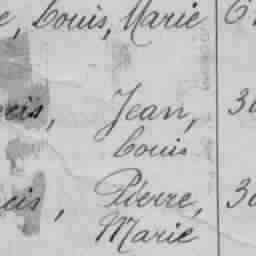 e, Louis, Marie
cis, Jean, 30
Louis
cis, Pierre, 30
Marie